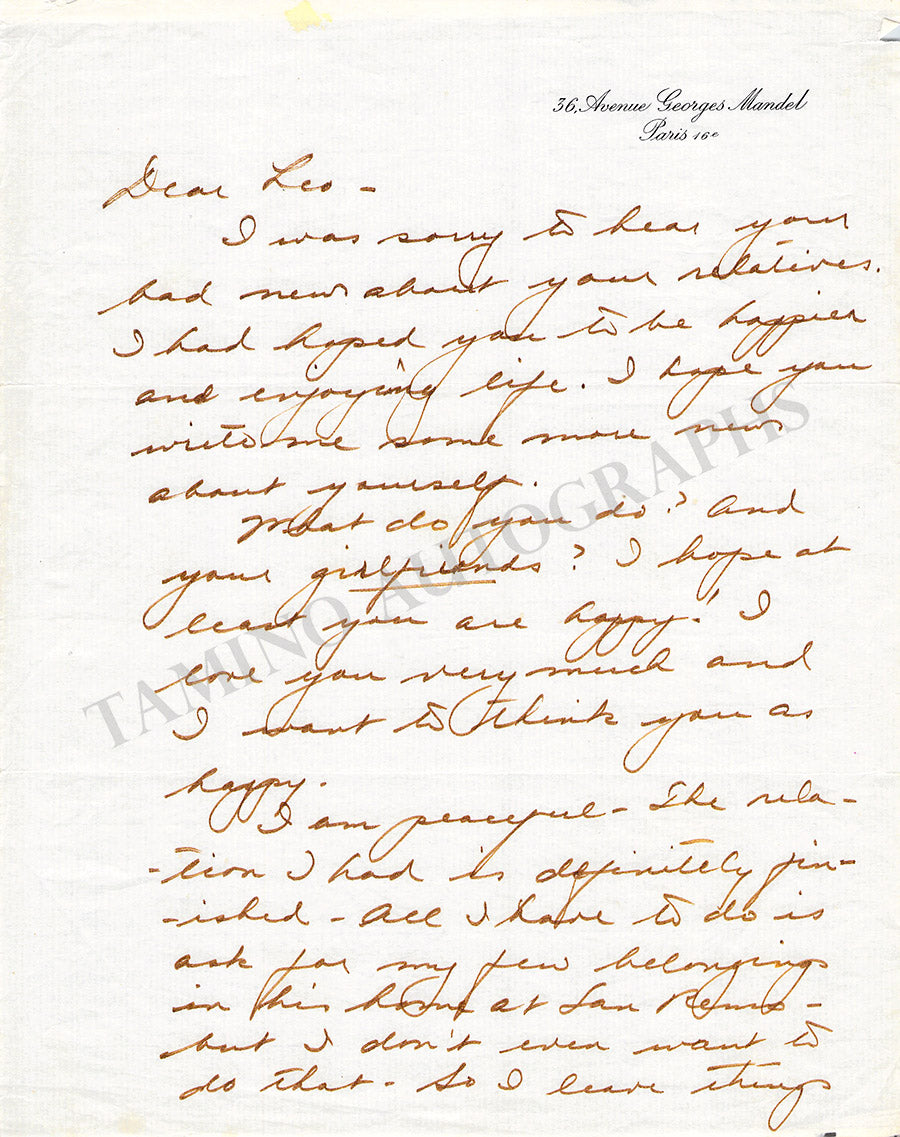 36, Avenue Georges Mandel
Paris 16e
Dear Leo -
I was sorry to hear your
bad news about your relatives.
I had hoped you to be happier
and enjoying life. I hope you
write me some more news
about yourself.
What do you do? And
your girlfriends? I hope at
least you are happy! I
love you very much and
I want to think you as
happy.
I am peaceful - The rela-
-tion I had is definitely fin-
-ished - All I have to do is
ask for my few belongings
in his home at San Remo -
but I don't even want to
do that - So I leave things
TAMINO AUTOGRAPHS